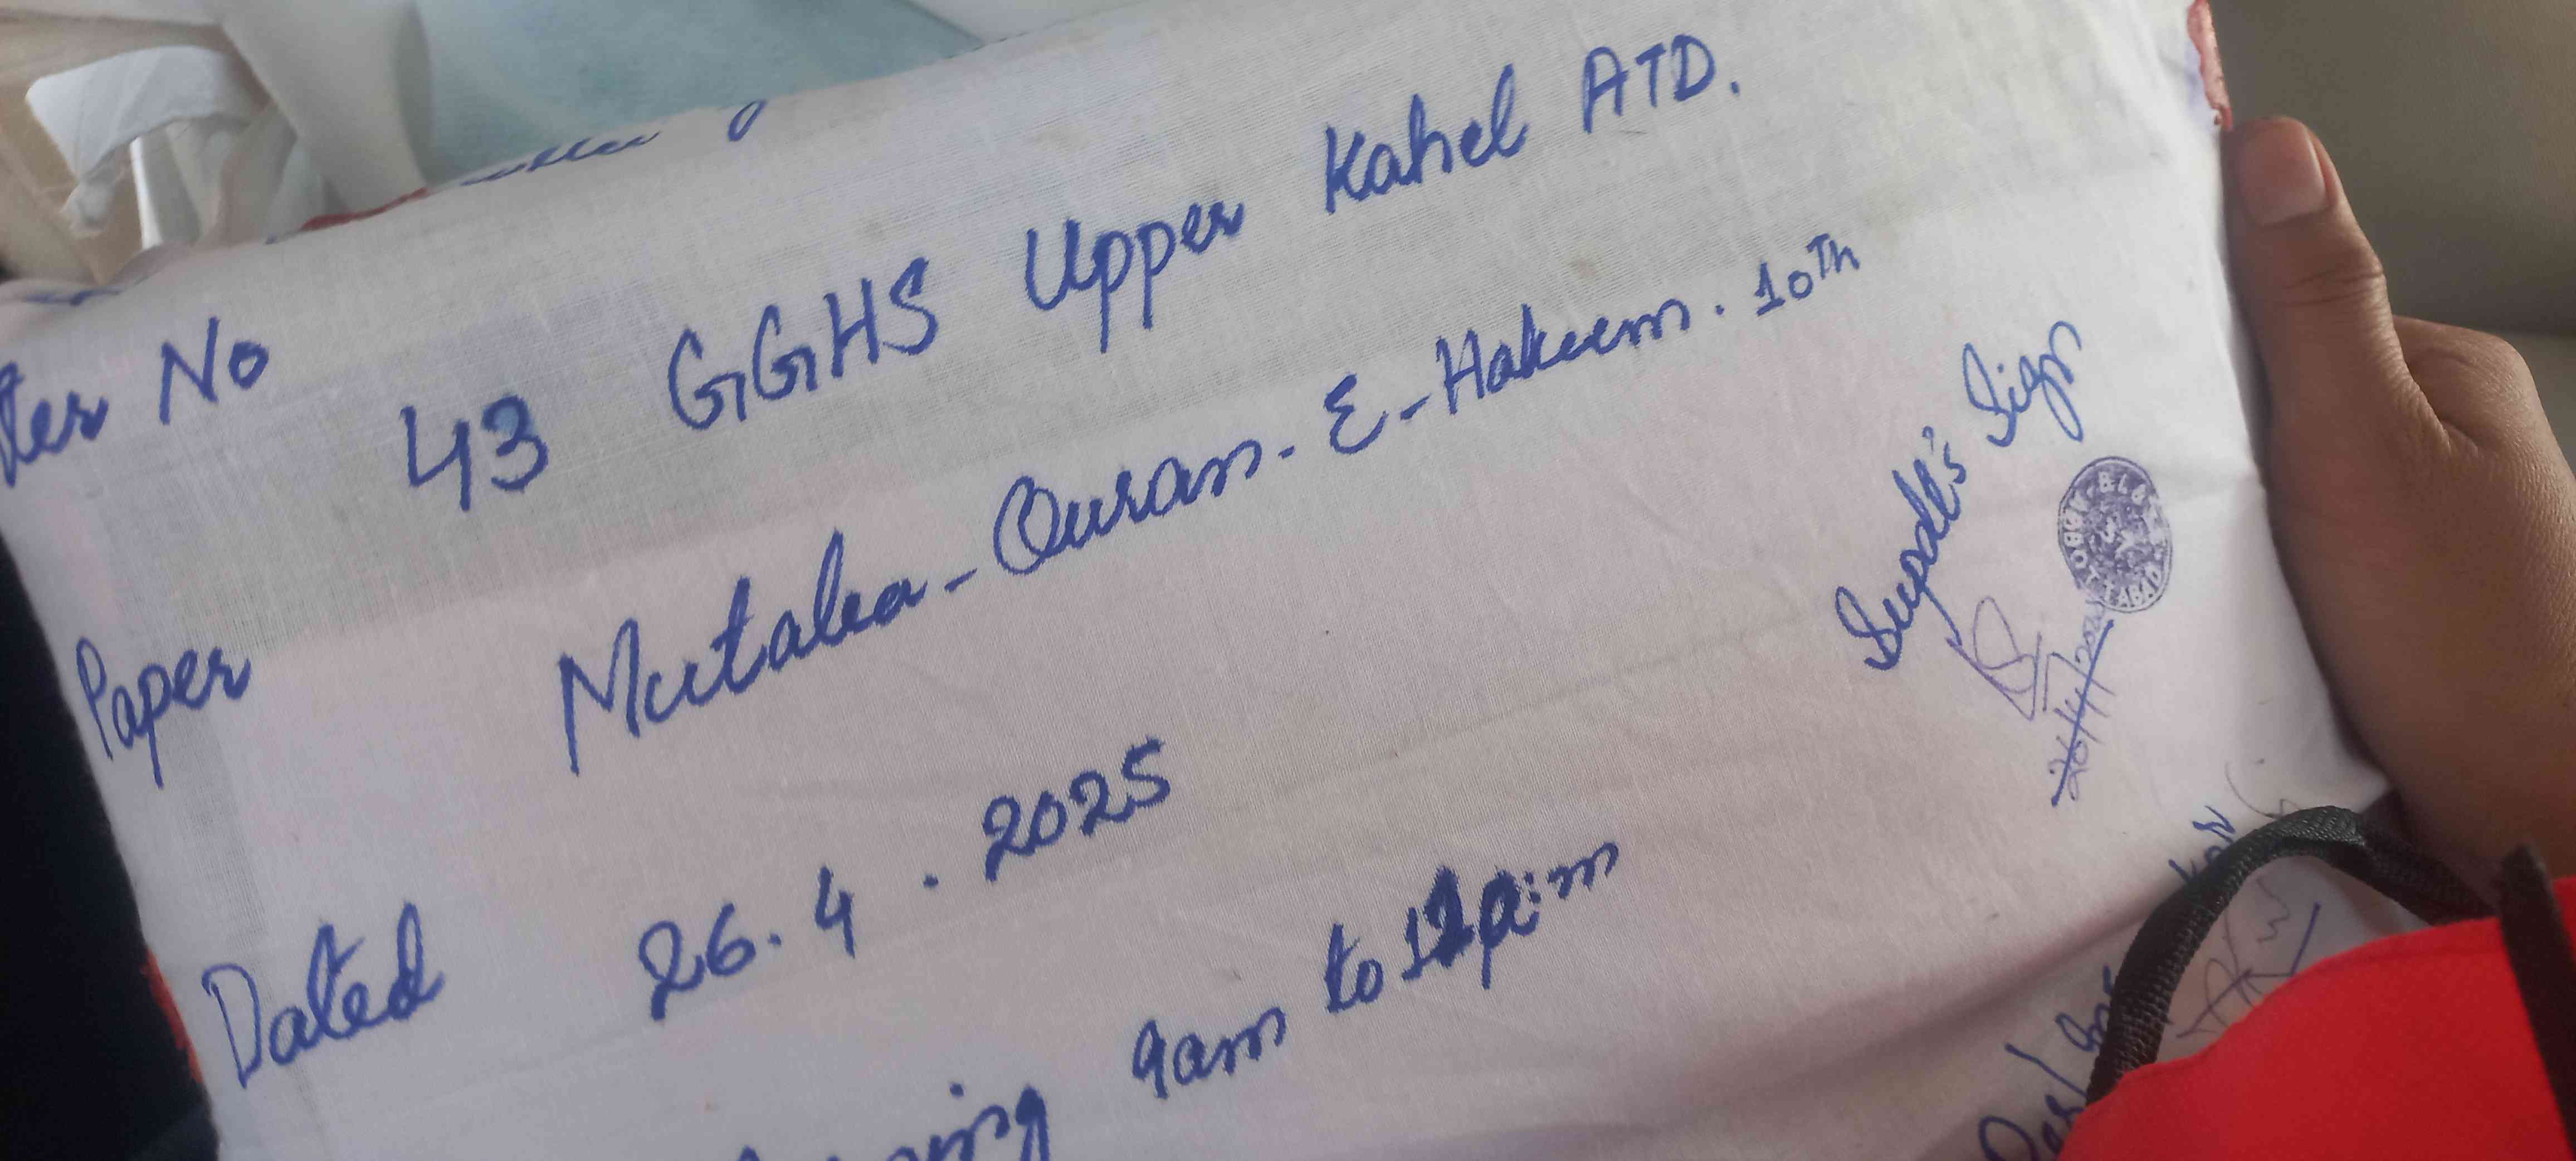 No 43 GGHS Upper Kahel ATD.
Paper Mutalea-Quran-E-Hakeem. 10Th
Dated 26.4.2025
9am to 12p:m
Supdt's Sign
26/4/2025